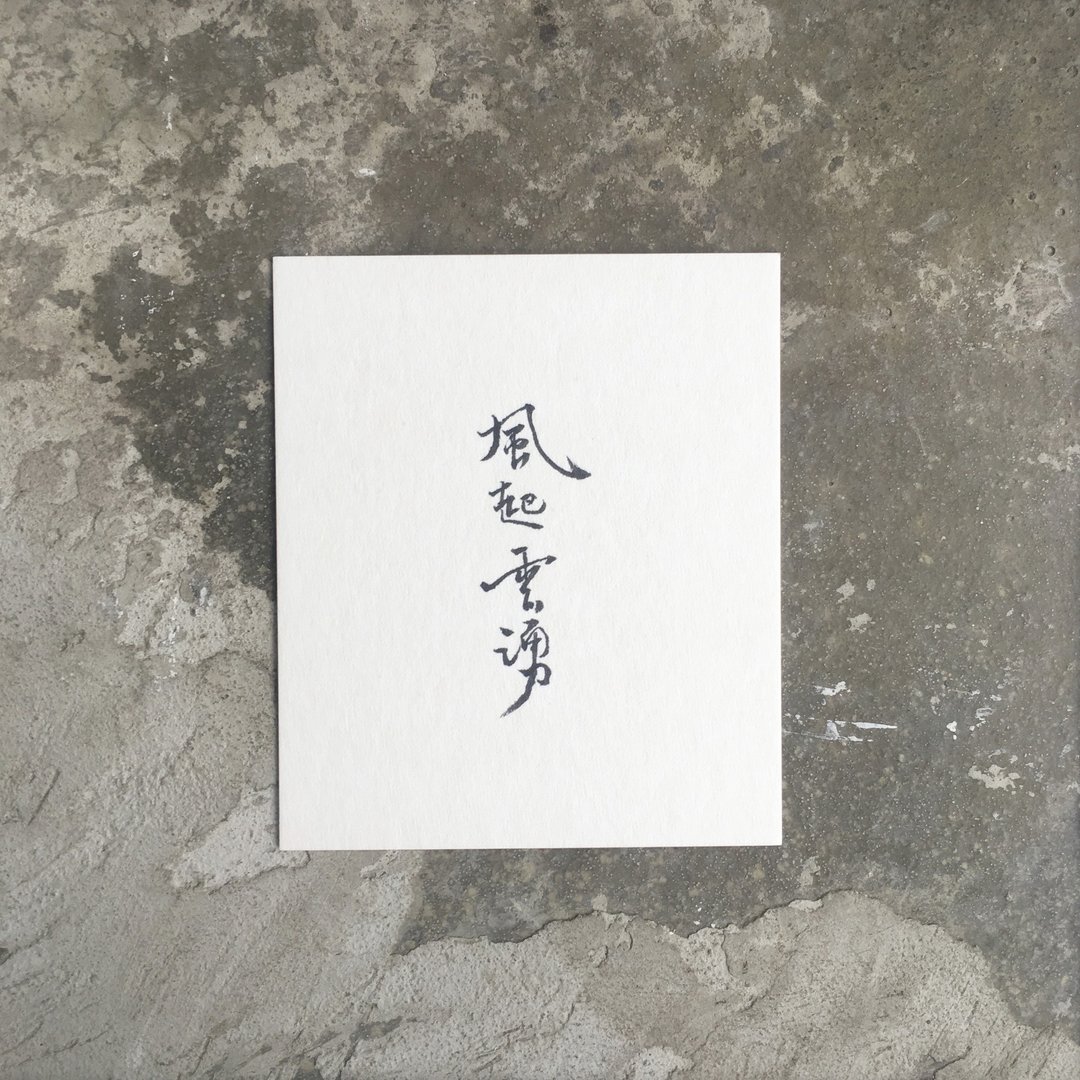 風起雲湧